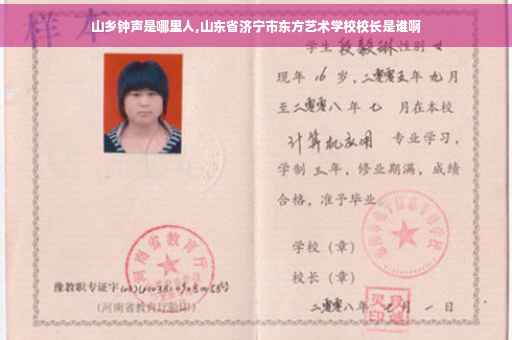 山乡钟声是哪里人,山东省济宁市东方艺术学校校长是谁啊
样本
学生 段毅琳 性别 女
现年 16 岁,二零零五年 九月
至二零零八年 七 月在本校
计算机应用 专业学习,
学制 三年,修业期满,成绩
合格,准予毕业
学校(章)
校长(章)
二零零八年 七 月 一 日
河南省教育厅
豫教职专证字
(河南省教育厅验印)